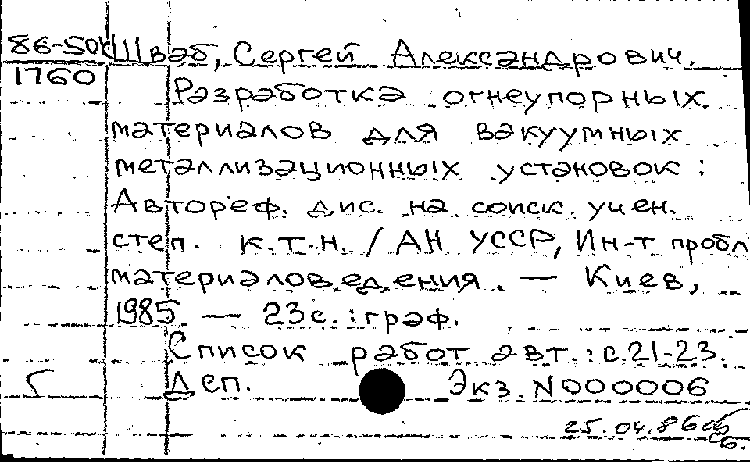 86-50к Шваб, Сергей Александрович.
1760 Разработка огнеупорных
материалов для вакуумных
металлизационных установок :
Автореф. дис. на соиск. учен.
степ. к.т.н. / АН УССР, Ин-т пробл
материаловедения. — Киев,
1985 — 23с. : граф.
Список работ авт.: с.21-23.
Деп. Экз. N000006
25.04.86